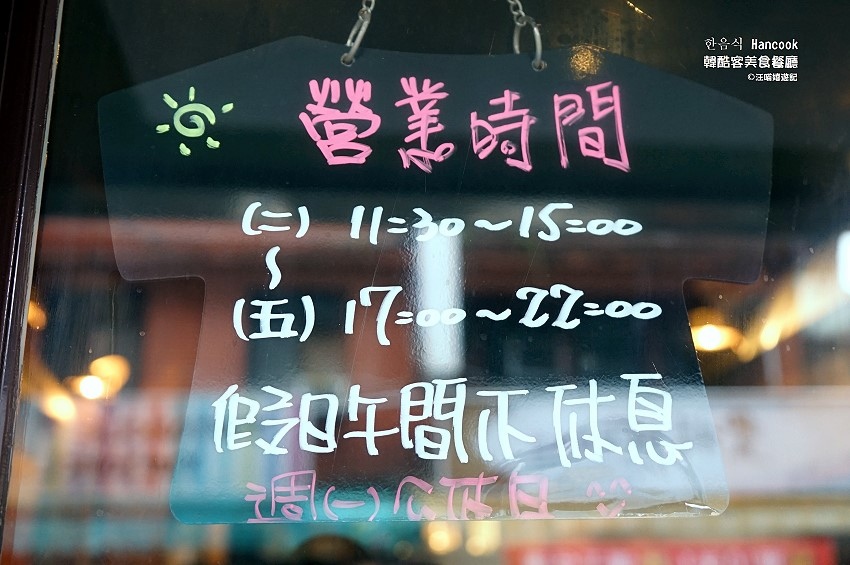 한음식 Hancook
韓酷客美食餐廳
©汪喵嬉遊記
營業時間
(二) 11:30~15:00
~
(五) 17:00~22:00
假日午間不休息
週(一)公休日